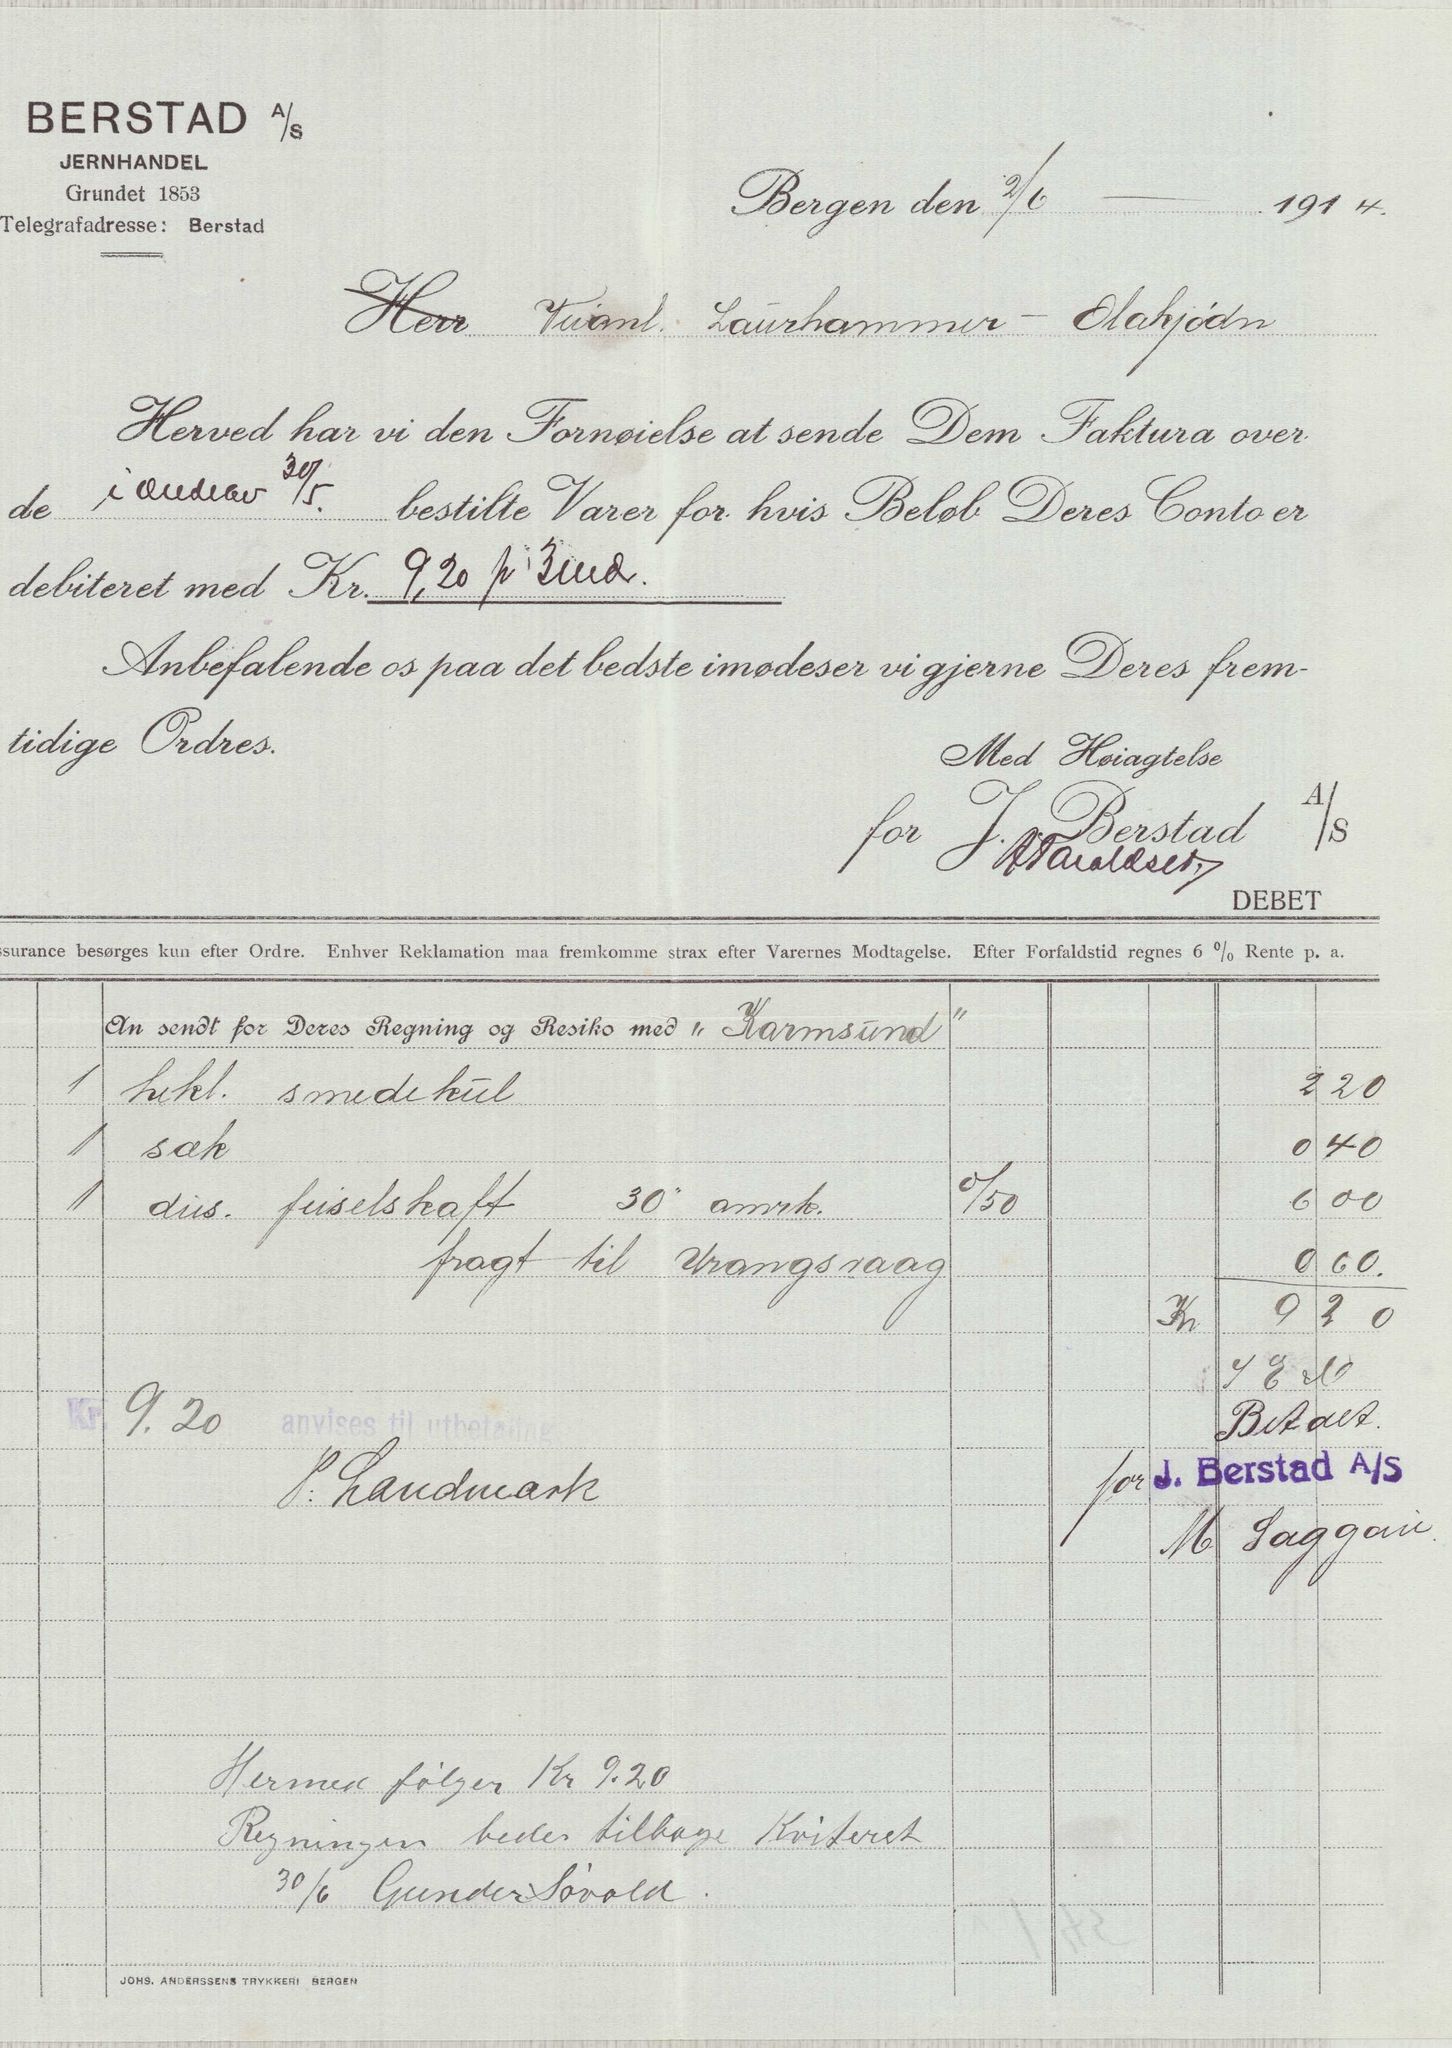 BERSTAD A/S
JERNHANDEL
Grundet 1853
Telegrafadresse: Berstad
Bergen den 2/6 1914.
Herr Veianl. Laurhammer - Olakjödn
Herved har vi den Fornøielse at sende Dem Faktura over
de i ordre av 30/5. bestilte Varer for hvis Beløb Deres Conto er
debiteret med Kr. 9,20 pr 3 md.
Anbefalende os paa det bedste imødeser vi gjerne Deres frem-
tidige Ordres.
Med Høiagtelse
for J. Berstad A/S
Haraldsen
DEBET
ssurance besørges kun efter Ordre. Enhver Reklamation maa fremkomme strax efter Varernes Modtagelse. Efter Forfaldstid regnes 6 % Rente p. a.
An sendt for Deres Regning og Resiko med „Karmsund"
1 hekl. smedekul 2 20
1 sæk 0 40
1 dus. feiselskaft 30" amrk. 0/50 6 00
fragt til Vrangsvaag 0 60.
Kr 9 20
Kr. 9.20 anvises til utbetaling
Betalt.
P. Landmark
for J. Berstad A/S
M
Hermed følger Kr 9.20
Regningen bedes tilbage Kviteret
30/6 Gunder Søvold.
JOHS. ANDERSSENS TRYKKERI BERGEN